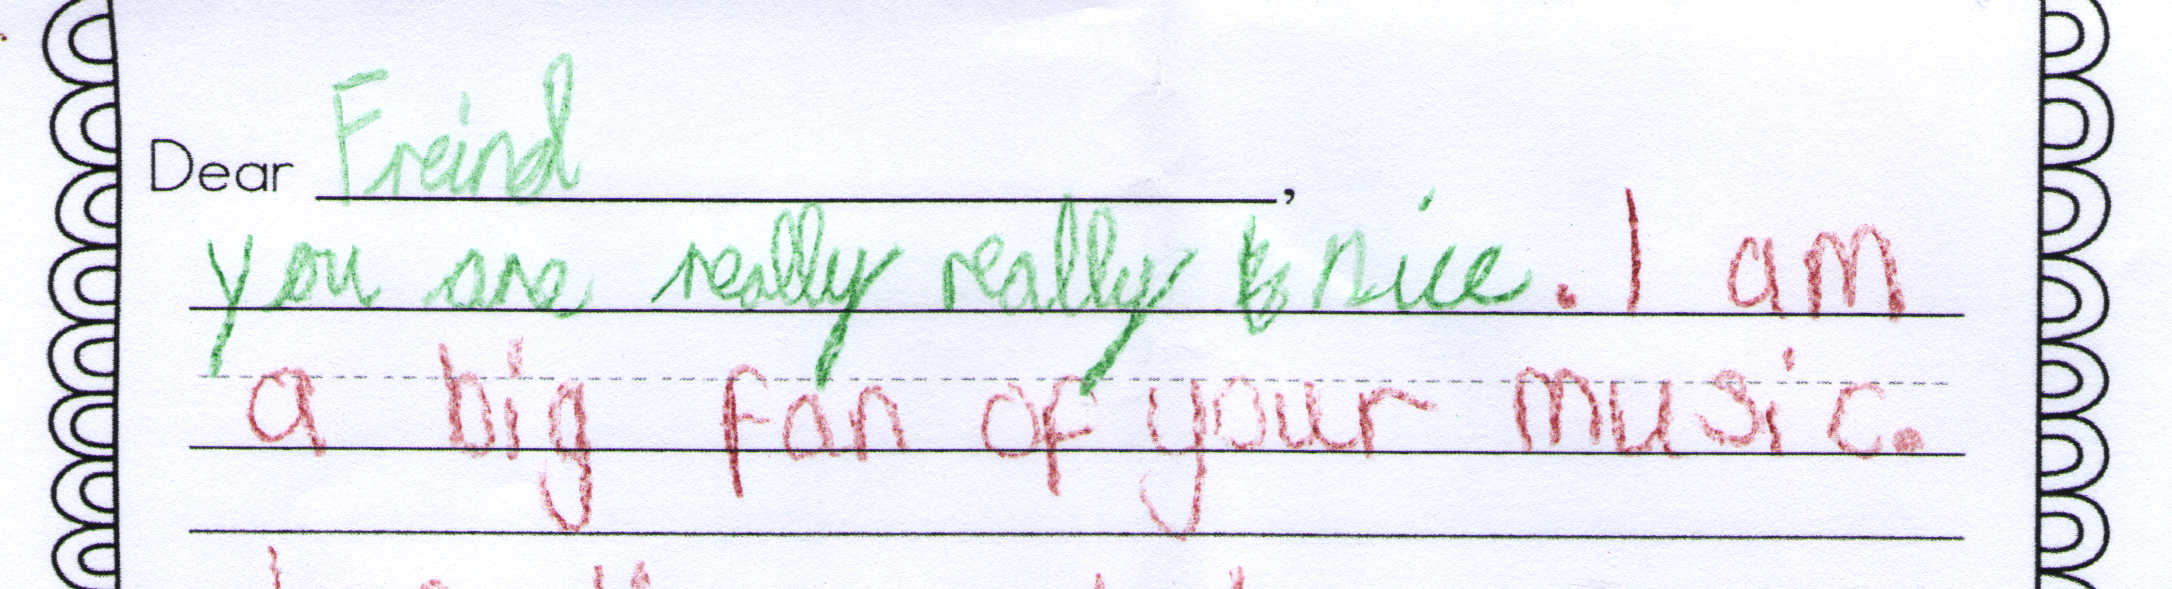 Dear Freind,
you are really really nice. I am
a big fan of your music.